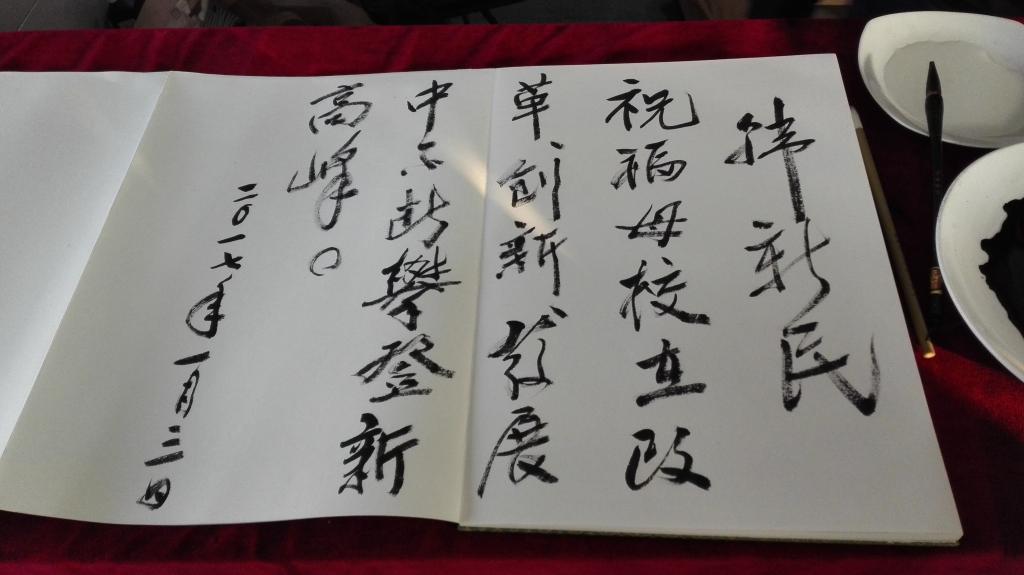 韩新民
祝福母校在改
革创新发展
中不断攀登新
高峰。
二〇一七年一月三日